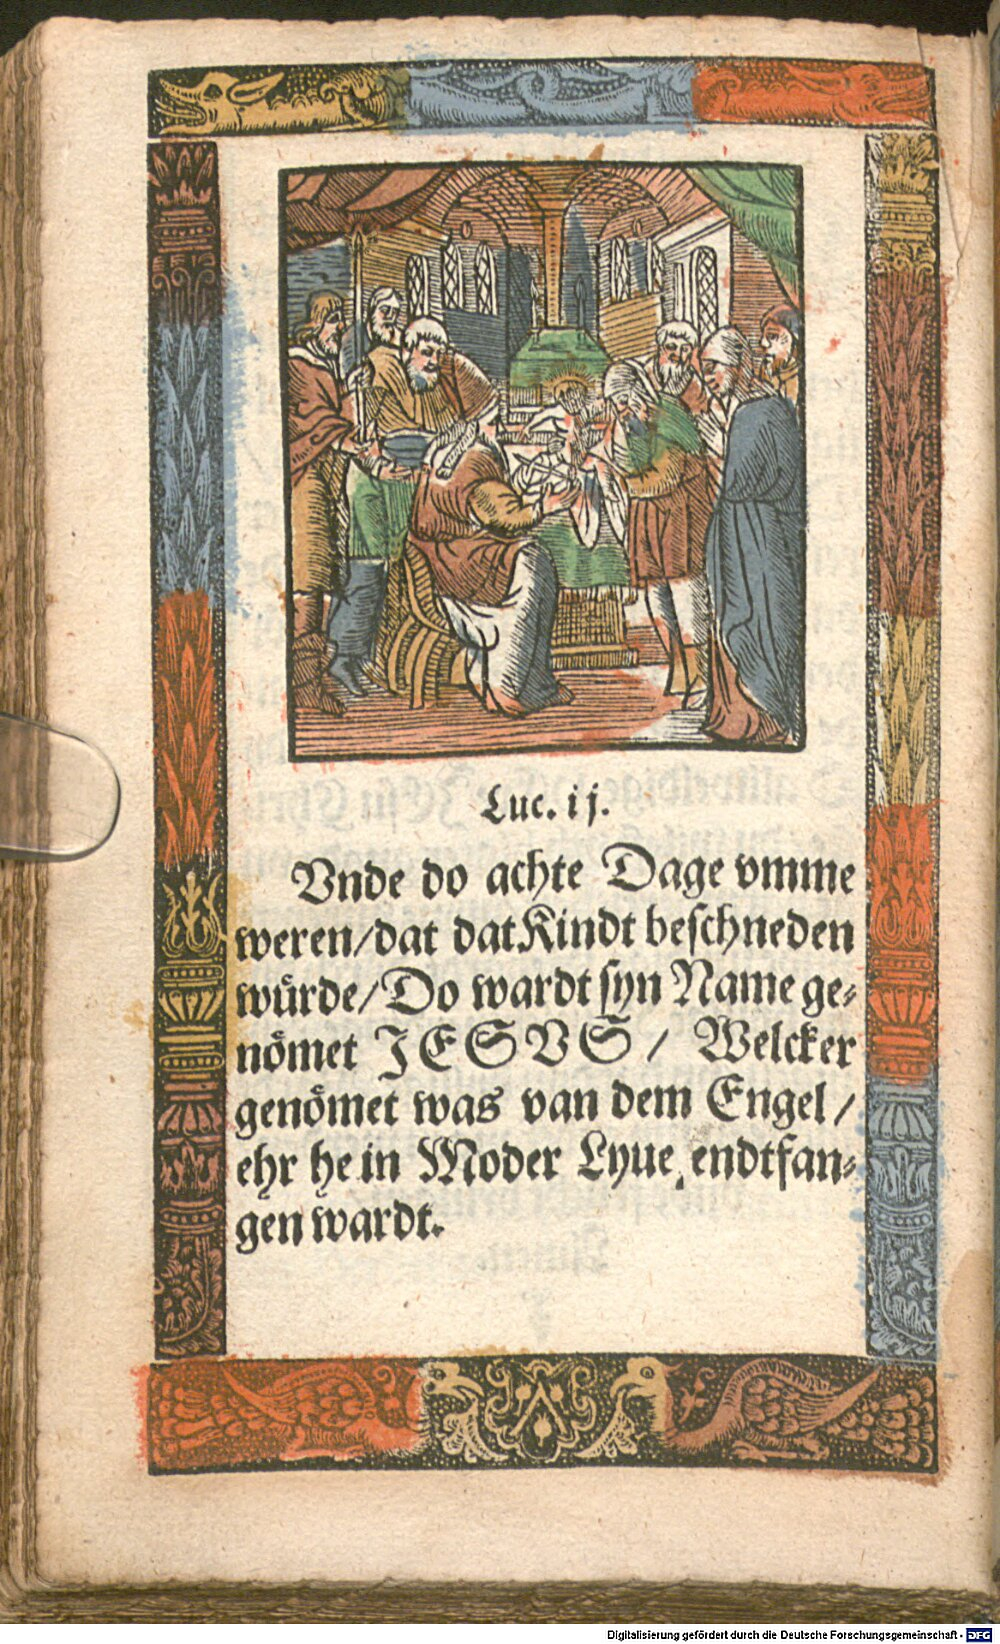 Luc. ij.
Vnde do achte Dage vmme
weren/dat dat Kindt beſchneden
würde/Do wardt ſyn Name ge⸗
nömet JESVS / Welcker
genömet was van dem Engel /
ehr he in Moder Lyue endtfan⸗
gen wardt.
Digitalisierung gefördert durch die Deutsche Forschungsgemeinschaft - DFG